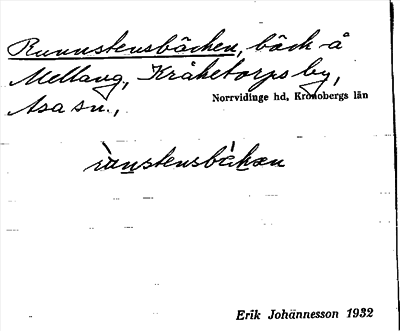 Runnstensbäcken, bäck-å
Mellang, Kråketorps by,
Asa sn., Norrvidinge hd, Kronobergs län
rùnstensbàkən
Erik Johännesson 1932